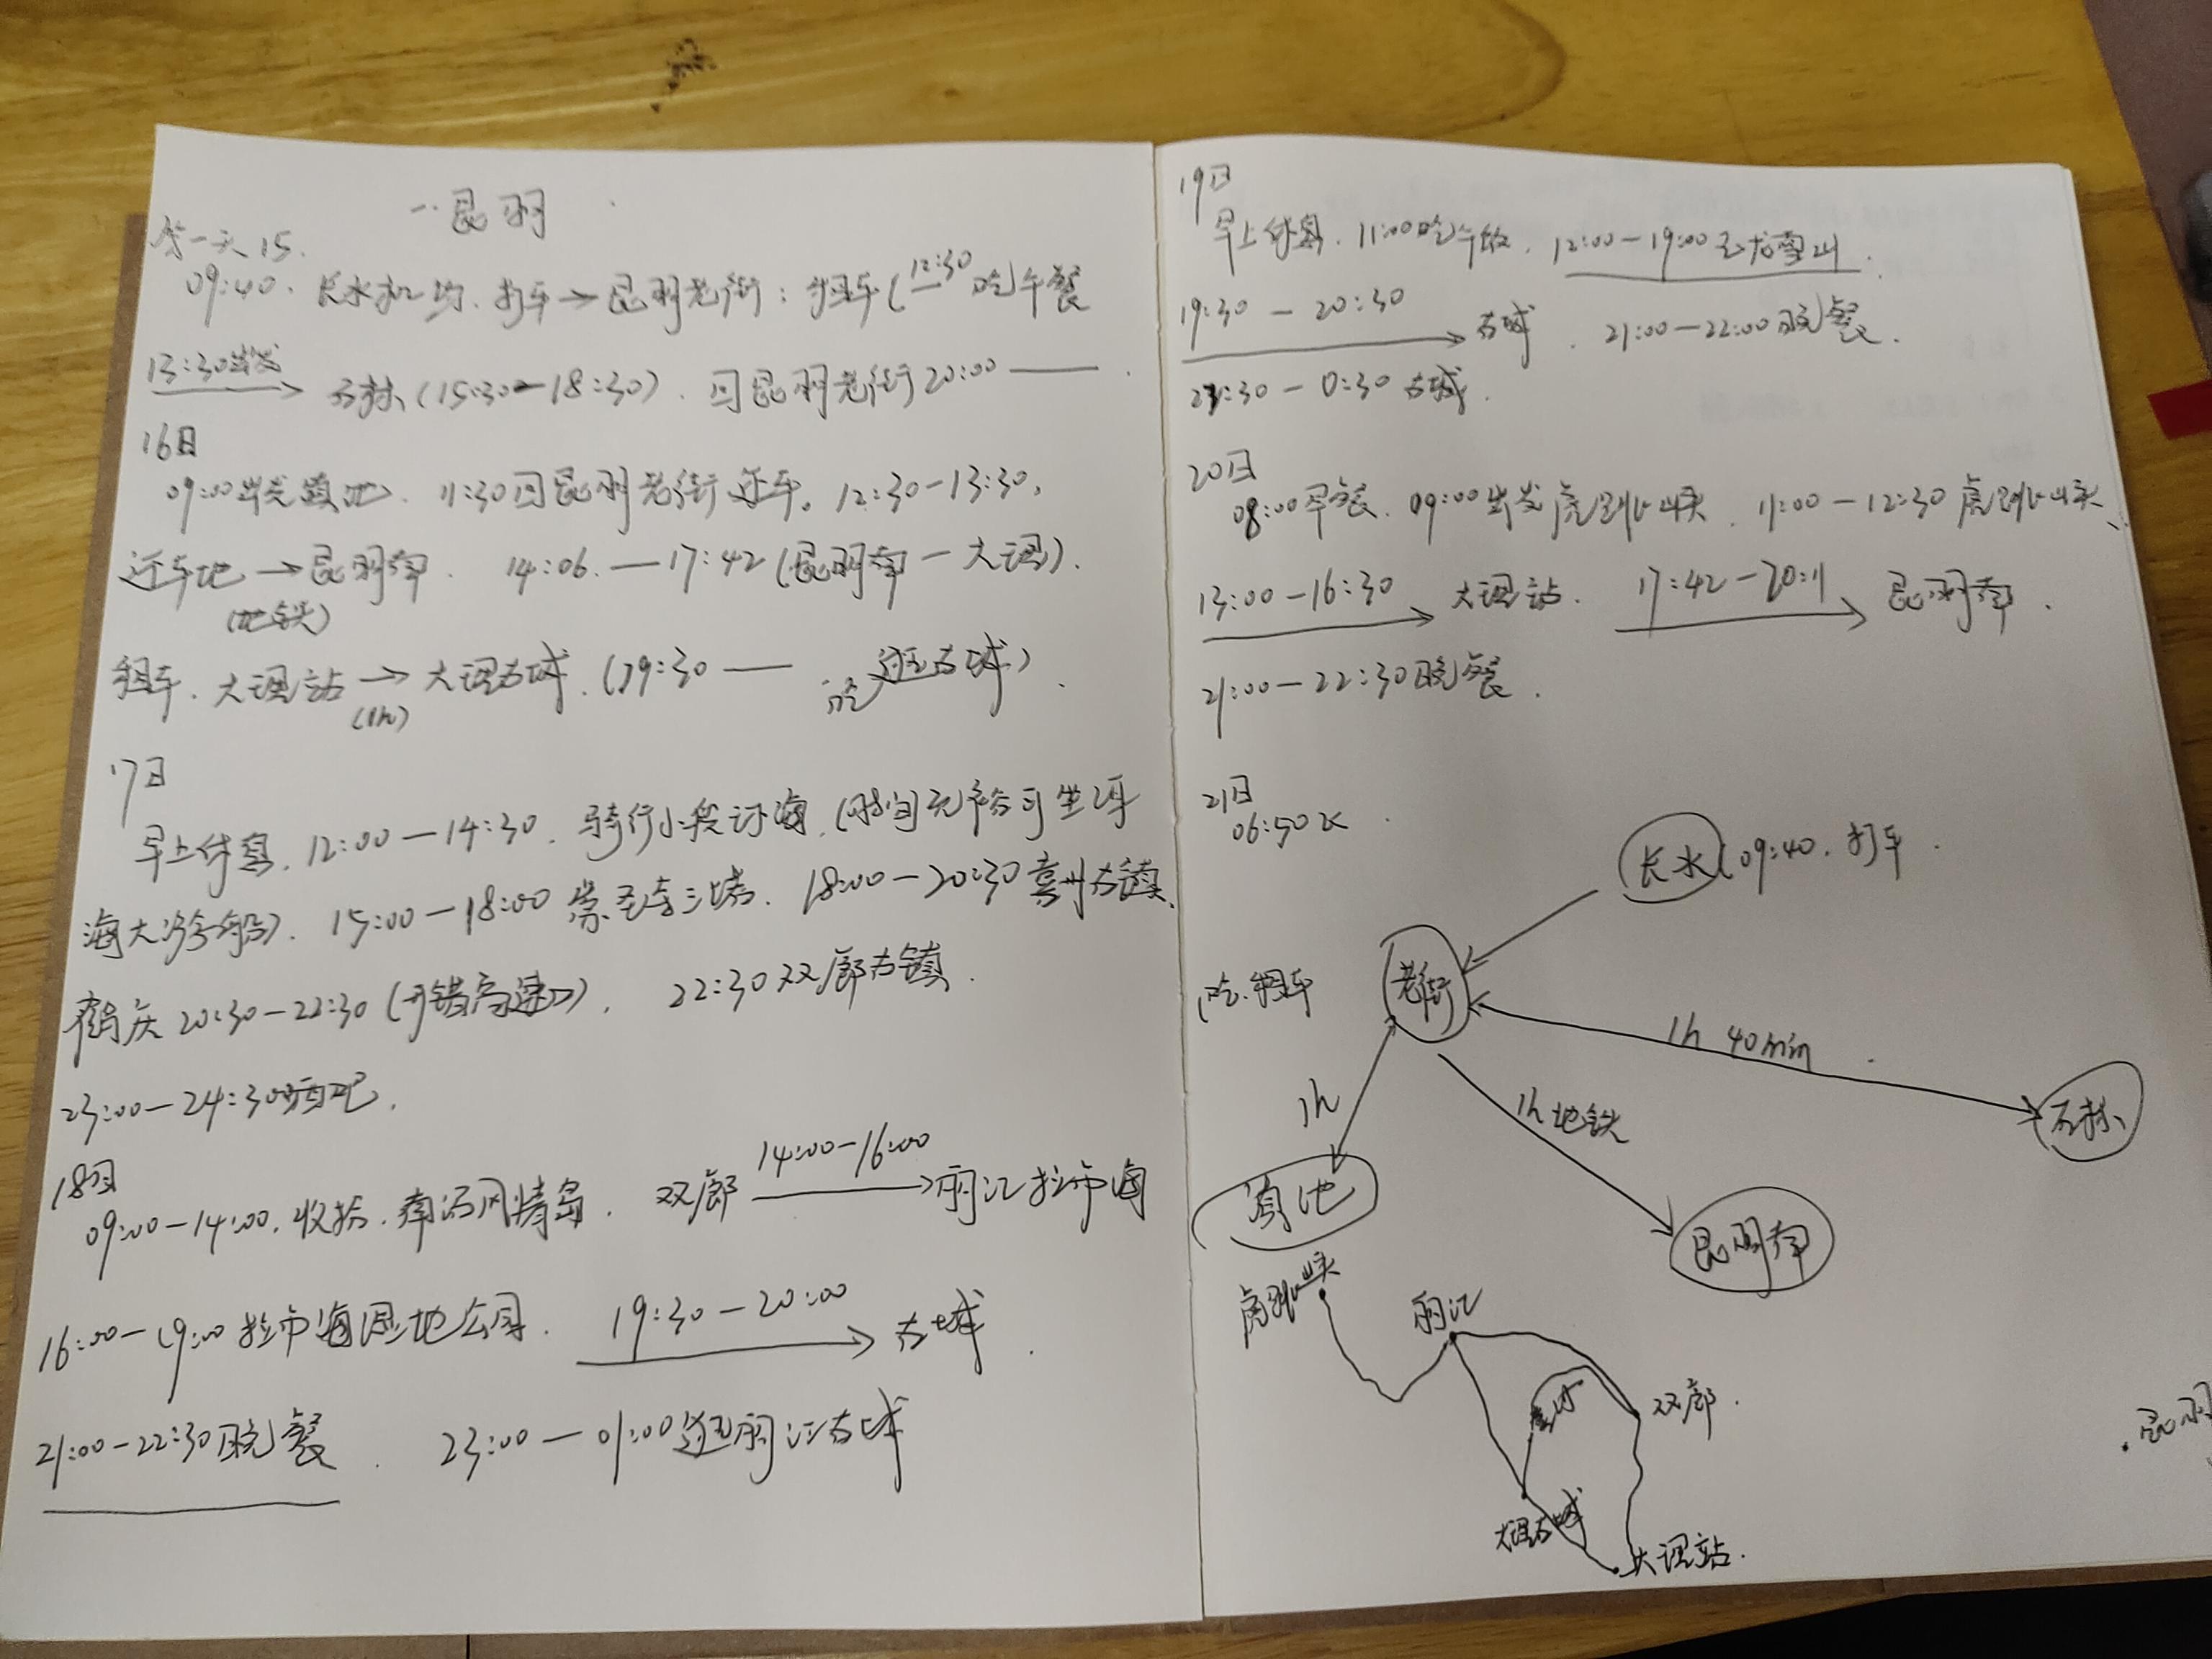 一.昆明
第一天 15.
09:40. 长水机场. 打车→昆明老街: 租车( 12:30 吃午餐
13:30出发 → 石林(15:30-18:30). 回昆明老街 20:00 ——.
16日
09:00出发滇池. 11:30回昆明老街还车. 12:30-13:30,
还车地 → 昆明南. 14:06.—17:42 (昆明南—大理).
(地铁)
租车. 大理站 → 大理古城. (19:30 —— 逛古城).
(1h) 吃
17日
早上休息. 12:00—14:30. 骑行小段洱海. (时间充裕可坐洱
海大游船). 15:00—18:00 崇圣寺三塔. 18:00—20:30 喜州古镇.
鹤庆 20:30-22:30 (开错高速口). 22:30 双廊古镇.
23:00—24:30酒吧.
18日
09:00-14:00. 收拾. 南诏风情岛. 双廊 14:00-16:00 → 丽江拉市海
16:00-19:00 拉市海湿地公园. 19:30-20:00 → 古城.
21:00-22:30晚餐. 23:00—01:00逛丽江古城
19日
早上休息. 11:00吃午饭. 12:00-19:00 玉龙雪山.
19:30 - 20:30 → 古城. 21:00-22:00晚餐.
22:30-0:30 古城.
20日
08:00早餐. 09:00出发虎跳峡. 11:00-12:30 虎跳峡.
13:00-16:30 → 大理站. 17:42-20:11 → 昆明南.
21:00-22:30晚餐.
21日
06:50飞.
长水 (09:40. 打车.
(吃.租车 老街
1h 40min
1h
1h 地铁
石林
滇池
昆明南
虎跳峡
丽江
双廊.
大理古城
大理站.